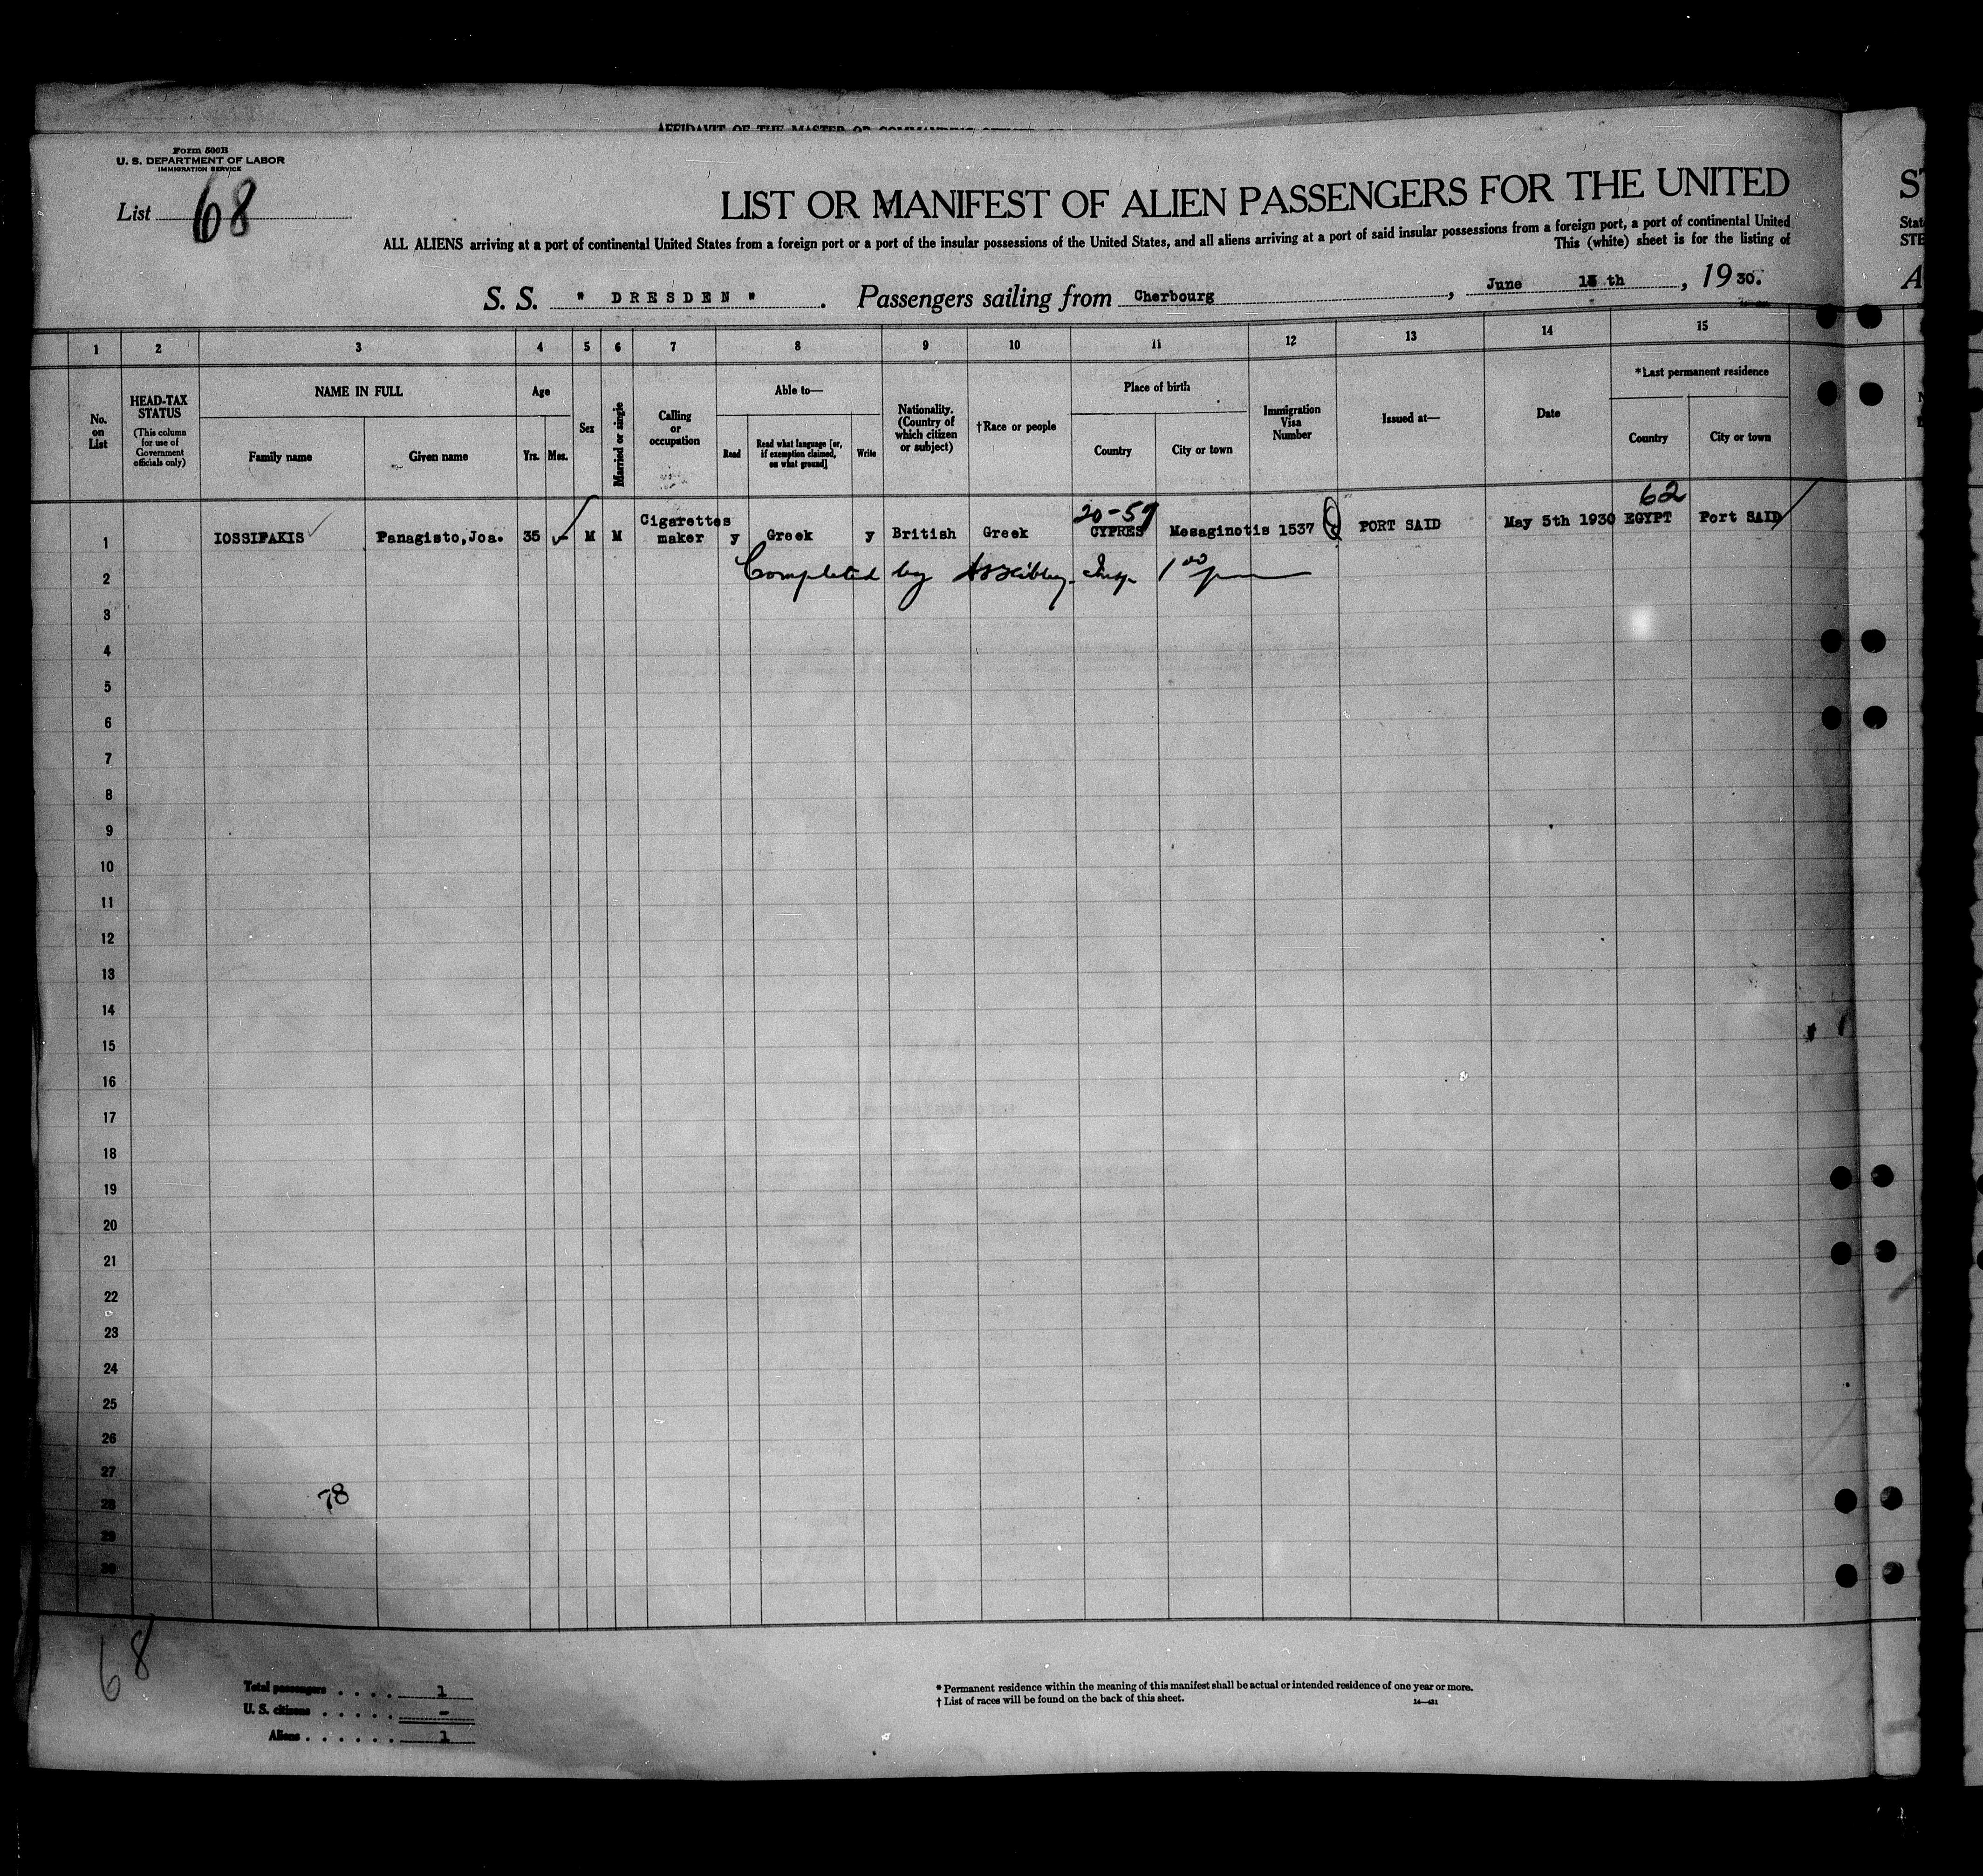 Form 500B
U. S. DEPARTMENT OF LABOR
IMMIGRATION SERVICE
List 68
LIST OR MANIFEST OF ALIEN PASSENGERS FOR THE UNITED
ALL ALIENS arriving at a port of continental United States from a foreign port or a port of the insular possessions of the United States, and all aliens arriving at a port of said insular possessions from a foreign port, a port of continental United
This (white) sheet is for the listing of
S. S. " DRESDEN ". Passengers sailing from Cherbourg, June th, 1930.
1 2 3 4 5 6 7 8 9 10 11 12 13 14 15
No. on List
HEAD-TAX STATUS
(This column for use of Government officials only)
NAME IN FULL
Family name Given name
Age
Yrs. Mos.
Sex
Married or single
Calling or occupation
Able to—
Read
Read what language [or, if exemption claimed, on what ground]
Write
Nationality. (Country of which citizen or subject)
†Race or people
Place of birth
Country City or town
Immigration Visa Number
Issued at—
Date
*Last permanent residence
Country City or town
20-59 62
1 IOSSIFAKIS Panagisto,Joa. 35 M M Cigarettes maker y Greek y British Greek CYPRES Mesaginotis 1537 PORT SAID May 5th 1930 EGYPT Port SAID
2 Completed by Insp. 1 00
3
4
5
6
7
8
9
10
11
12
13
14
15
16
17
18
19
20
21
22
23
24
25
26
27
28 78
29
30
68
Total passengers . . . . 1
U. S. citizens . . . . . –
Aliens . . . . . . 1
* Permanent residence within the meaning of this manifest shall be actual or intended residence of one year or more.
† List of races will be found on the back of this sheet.